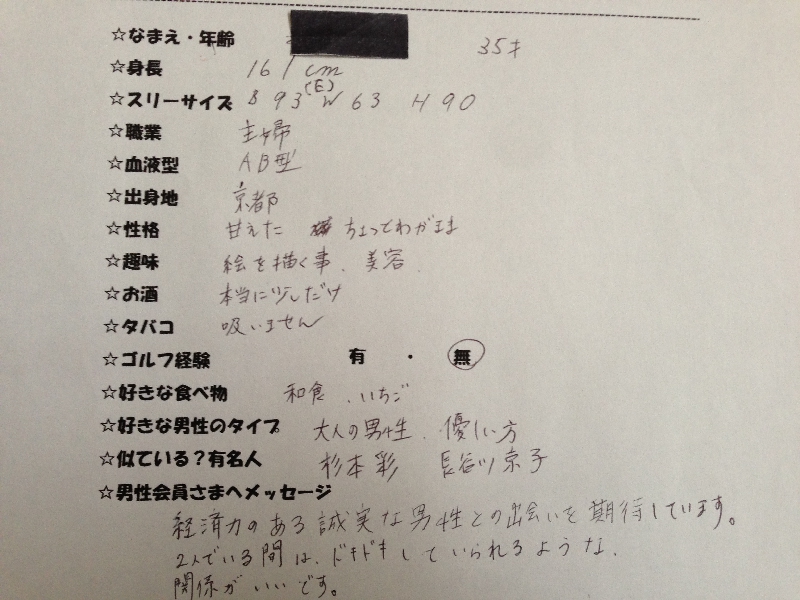 ☆なまえ・年齢 35才
☆身長 161cm
☆スリーサイズ B 93(E) W 63 H 90
☆職業 主婦
☆血液型 AB型
☆出身地 京都
☆性格 甘えた ちょってわがまま
☆趣味 絵を描く事、美容、
☆お酒 本当に少しだけ
☆タバコ 吸いません
☆ゴルフ経験 有 ・ 無
☆好きな食べ物 和食、いちご
☆好きな男性のタイプ 大人の男性、優しい方
☆似ている?有名人 杉本彩 長谷川京子
☆男性会員さまへメッセージ
経済力のある誠実な男性との出会いを期待しています。
2人でいる間は、ドキドキしていられるような、
関係がいいです。